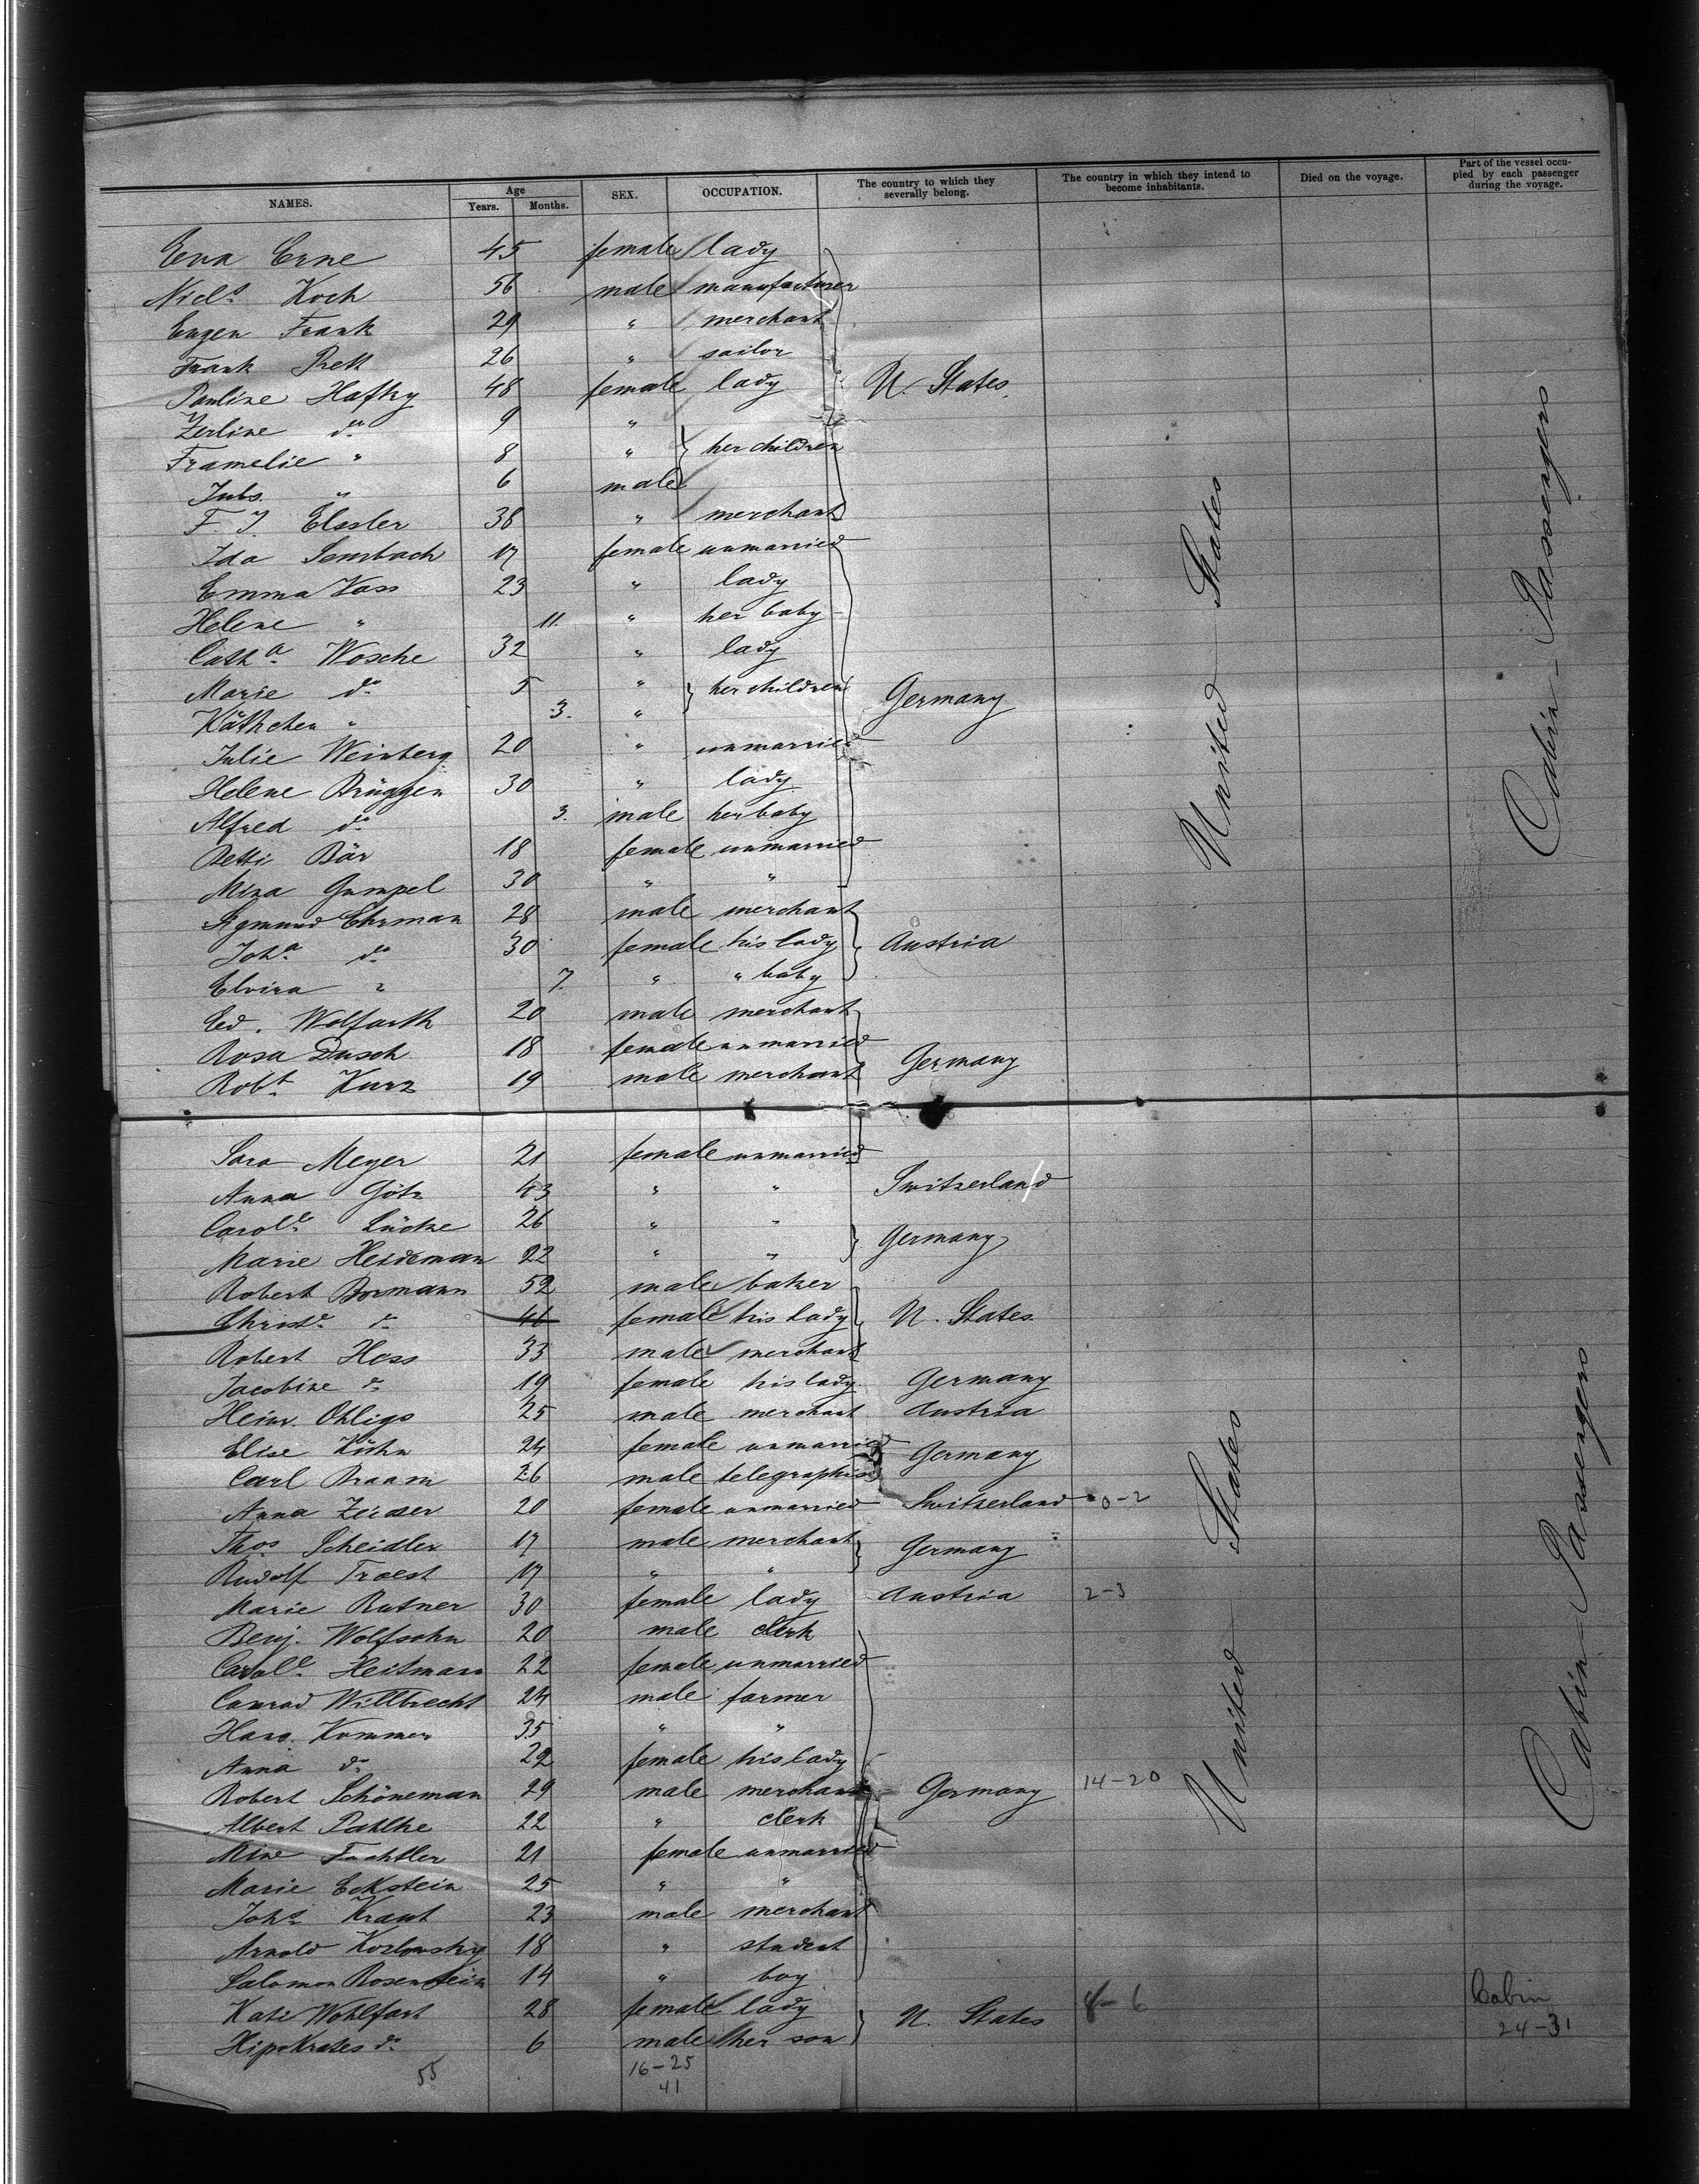 NAMES. Age Years. Months. SEX. OCCUPATION. The country to which they severally belong. The country in which they intend to become inhabitants. Died on the voyage. Part of the vessel occupied by each passenger during the voyage.
Eva Erne 45 female lady
Nicls. Koch 56 male manufacturer
Eugen Frank 29 " merchant
Frank Rett 26 " sailor
Pauline Hafky 48 female lady U. States.
Zerline do. 9 "
Framelie " 8 " } her children
Jubs. " 6 male
F. J. Elssler 38 " merchant
Ida Sembach 17 female unmarried
Emma Kass 23 " lady
Helene " 11. " her baby
Catha. Wosche 32 " lady
Marie do. 5 " } her children Germany
Käthchen " 3. "
Julie Weinberg 20 " unmarried
Helene Brüggen 30 " lady
Alfred do. 3. male her baby
Betti Bär 18 female unmarried
Mina Gumpel 30 " "
Sigmund Ehrman 28 male merchant
Joha. do. 30 female his lady Austria
Elvira " 7. " " baby
Ed. Wolfarth 20 male merchant
Rosa Dusch 18 female unmarried Germany
Robt. Kurz 19 male merchant
United States
Cabin-Passengers
Sara Meyer 21 female unmarried
Anna Götz 43 " " Switzerland
Carole. Lücke 26 " " } Germany
Marie Heideman 22 " "
Robert Bormann 52 male baker
Christe. do. 46 female his lady U. States.
Robert Hess 33 male merchant
Jacobine do. 19 female his lady Germany
Heinr. Ohligs 25 male merchant Austria
Elise Kühn 24 female unmarried Germany
Carl Braam 26 male telegraphist
Anna Zeidser 20 female unmarried Switzerland 0-2
Thos. Scheidler 17 male merchant } Germany
Rudolf Troest 17 " "
Marie Rutner 30 female lady Austria 2-3
Benj. Wolfsohn 20 male clerk
Carole. Heitmann 22 female unmarried
Conrad Willbrecht 24 male farmer
Hans. Kommer 35 " "
Anna do. 22 female his lady
Robert Schöneman 29 male merchant Germany 14-20
Albert Pahlke 22 " clerk
Mine Fachtler 21 female unmarried
Marie Eckstein 25 " "
Johs. Kraut 23 male merchant
Arnold Kozlowsky 18 " student
Salomon Rosenstein 14 " boy
Kate Wohlfart 28 female lady } U. States 8-6
Hipokrates do. 6 male her son
United States
Cabin-Passengers
Cabin
24-31
55 16-25
41